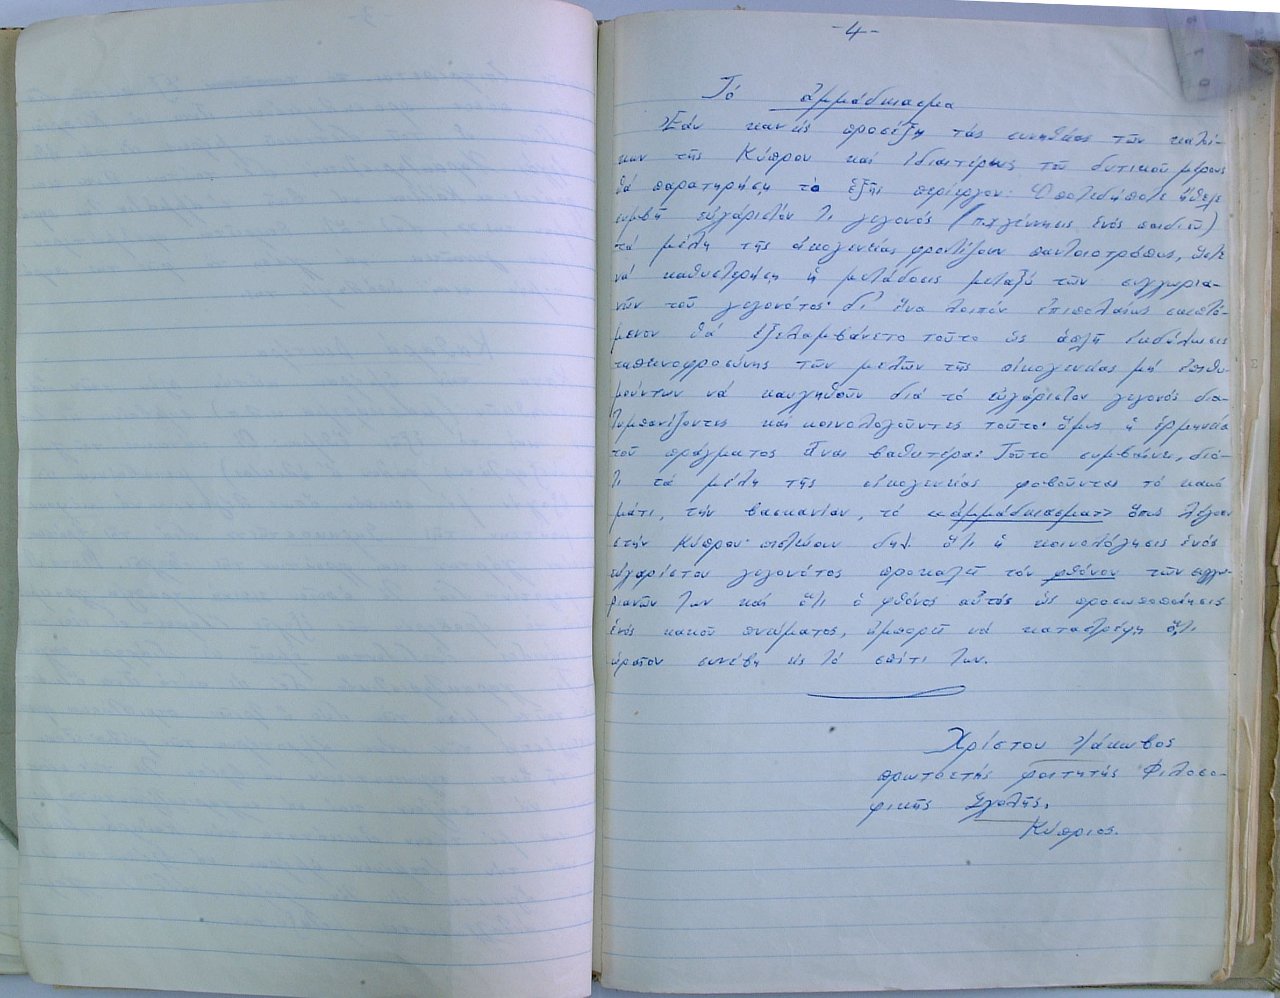 -4-
Τό ἀμμάδκιασμα
Ἐάν κανείς προσέξη τάς συνηθείας τῶν κατοί-
κων τῆς Κύπρου καί ἰδιαιτέρως τοῦ δυτικοῦ μέρους
θά παρατηρήση τό ἑξῆς περίεργον: Ὁποτεδήποτε ἤθελε
συμβῆ εὐχάριστόν τι γεγονός (π.χ γέννησις ἑνός παιδιοῦ)
τά μέλη τῆς οἰκογενείας φροντίζουν παντοιοτρόπως, ὥστε
νά καθυστερήση ἡ μετάδοσις μεταξύ τῶν συγχωρια-
νῶν τοῦ γεγονότος· δι' ἕνα λοιπόν ἐπιπολαίως σκεπτό-
μενον θά ἐξελαμβάνετο τοῦτο ὡς ἁπλῆ ἐκδήλωσις
ταπεινοφροσύνης τῶν μελῶν τῆς οἰκογενείας μή ἐπιθυ-
μούντων νά καυχηθοῦν διά τό εὐχάριστον γεγονός δια-
τυμπανίζοντες καί κοινολογοῦντες τοῦτο· ὅμως ἡ ἑρμηνεία
τοῦ πράγματος εἶναι βαθυτέρα: Τοῦτο συμβαίνει, διό-
τι τά μέλη τῆς οἰκογενείας φοβοῦνται τό κακό
μάτι, τήν βασκανίαν, τό «ἀμμάδκιασμα» ὅπως λέγουν
στήν Κύπρου· πιστεύουν δηλ. ὅτι ἡ κοινολόγησις ἑνός
εὐχαρίστου γεγονότος προκαλεῖ τόν φθόνον τῶν συγχω-
ριανῶν των καί ὅτι ὁ φθόνος αὐτός ὡς προσωποποίησις
ἑνός κακοῦ πνεύματος, ἠμπορεῖ νά καταστρέψη ὅ,τι
ὡραῖον συνέβη εἰς τό σπίτι των.
Χρίστου Ἰάκωβος
πρωτοετής φοιτητής Φιλοσο-
φικῆς Σχολῆς.
Κύπριος.